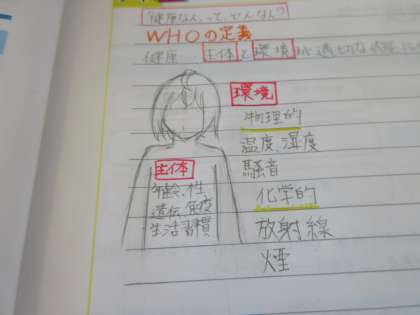 健康なんって、どんなん?
WHOの定義
健康… 主体と環境が適切な
環境
物理的
温度、湿度
騒音
化学的
放射線
煙
主体
年齢、性
遺伝、免疫
生活習慣